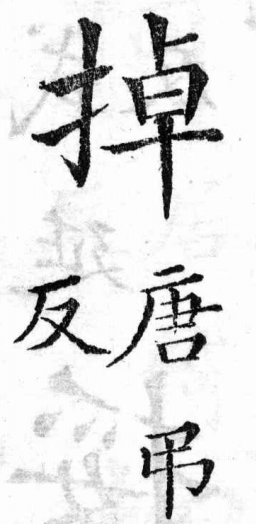 掉
唐弔
反